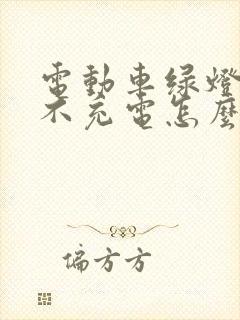 電動車綠燈
不充電怎麼
偏方方